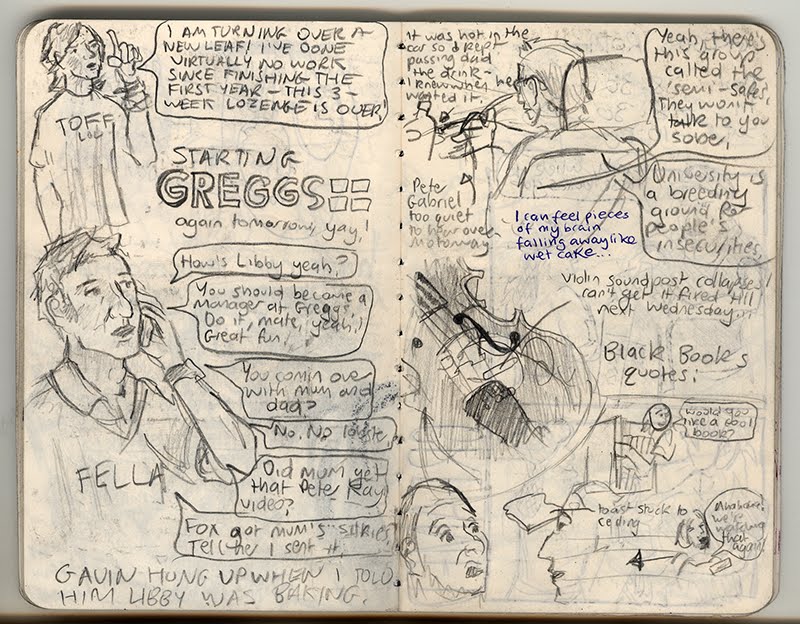 I AM TURNING OVER A
NEW LEAF! I'VE DONE
VIRTUALLY NO WORK
SINCE FINISHING THE
FIRST YEAR - THIS 3-
WEEK LOZENGE IS OVER!
TOFF
LOL
STARTING
GREGGS
again tomorrow, yay!
How's Libby yeah?
You should become a
manager at Greggs.
Do it, mate, yeah,
Great fun.
You comin over
with mum and
dad?
No. No
Did mum get
that Peter Kay
video?
FELLA
Fox got mum's
Tell her I sent it.
GAVIN HUNG UP WHEN I TOLD
HIM LIBBY WAS BAKING.
It was hot in the
car so I kept
passing dad
the drink -
I knew when he'd
wanted it.
Yeah, there's
this group
called the
'semi-safes'.
They won't
talk to you
sober.
Pete
Gabriel
too quiet
to hear over
Motorway
University is
a breeding
ground for
people's
insecurities
I can feel pieces
of my brain
falling away like
wet cake...
Violin soundpost collapses!
can't get it fixed till
next Wednesday...
Black Books
quotes:
Would you
like a cool
book?
toast stuck to
ceiling
we're
watching
that
again!